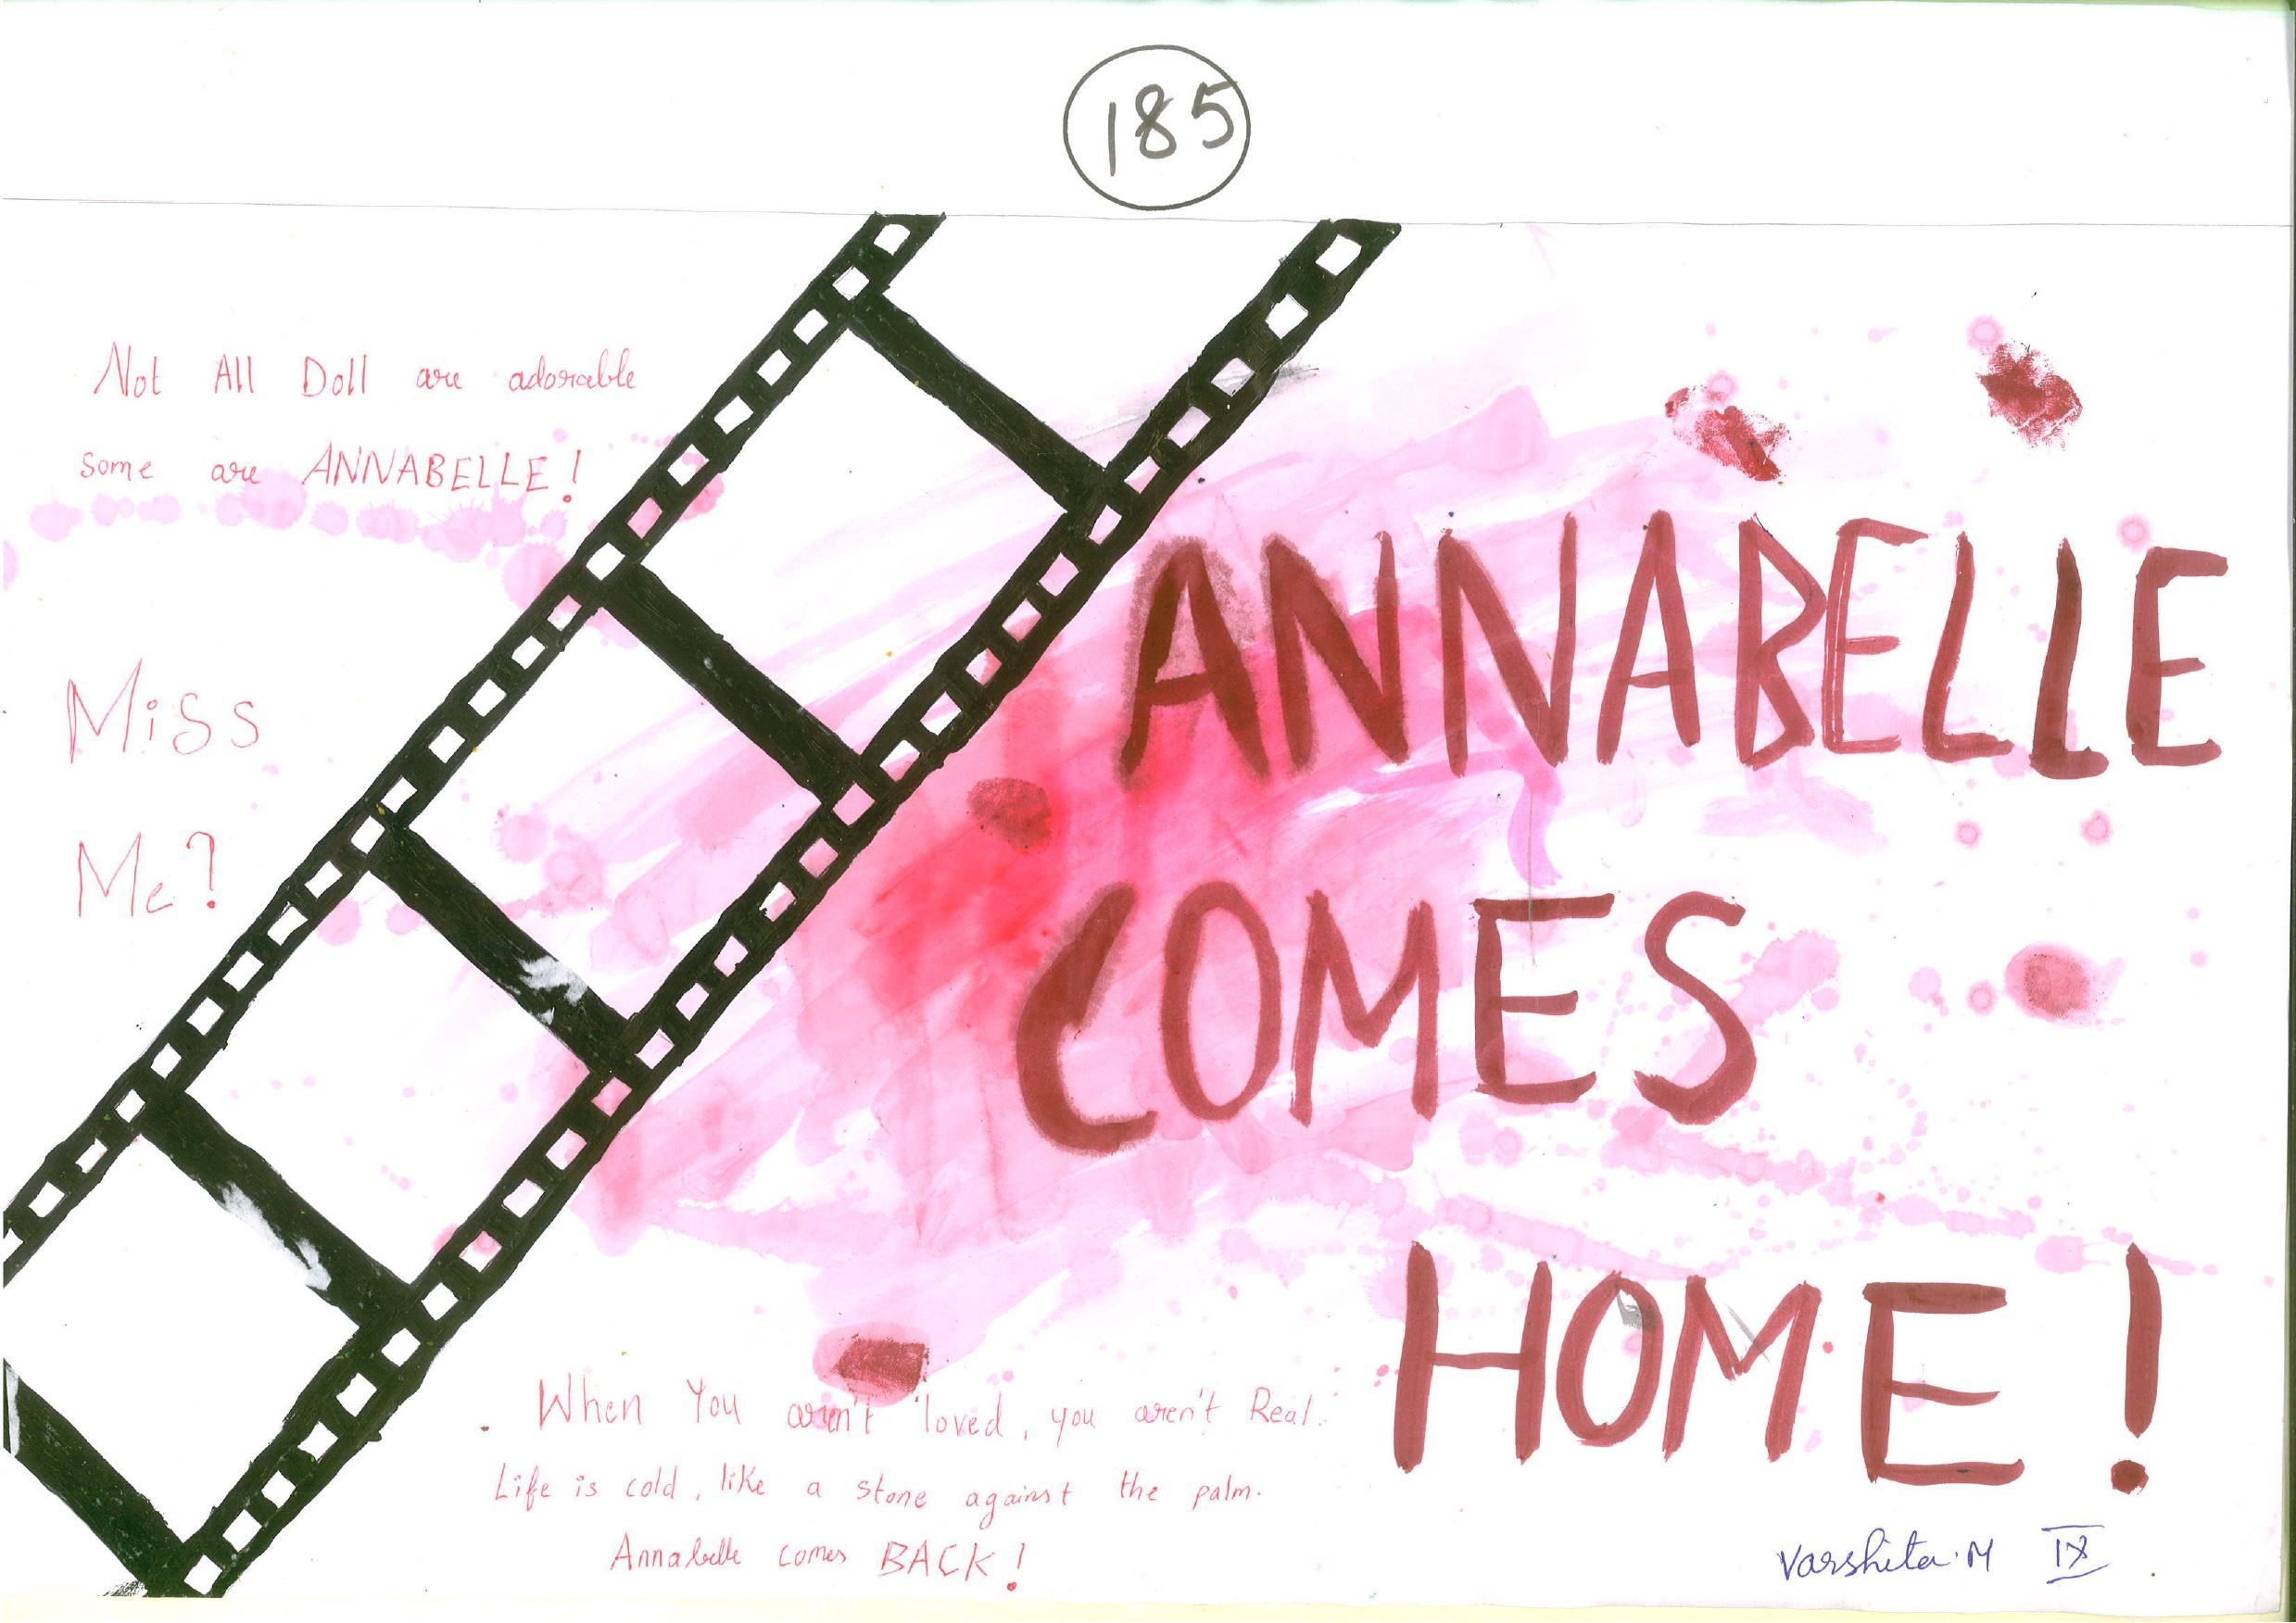 185
Not All Doll are adorable
some are ANNABELLE!
Miss
Me?
ANNABELLE
COMES
HOME!
. When You aren't loved, you aren't Real.
Life is cold, like a stone against the palm.
Annabelle comes BACK!
Varshita.M IX